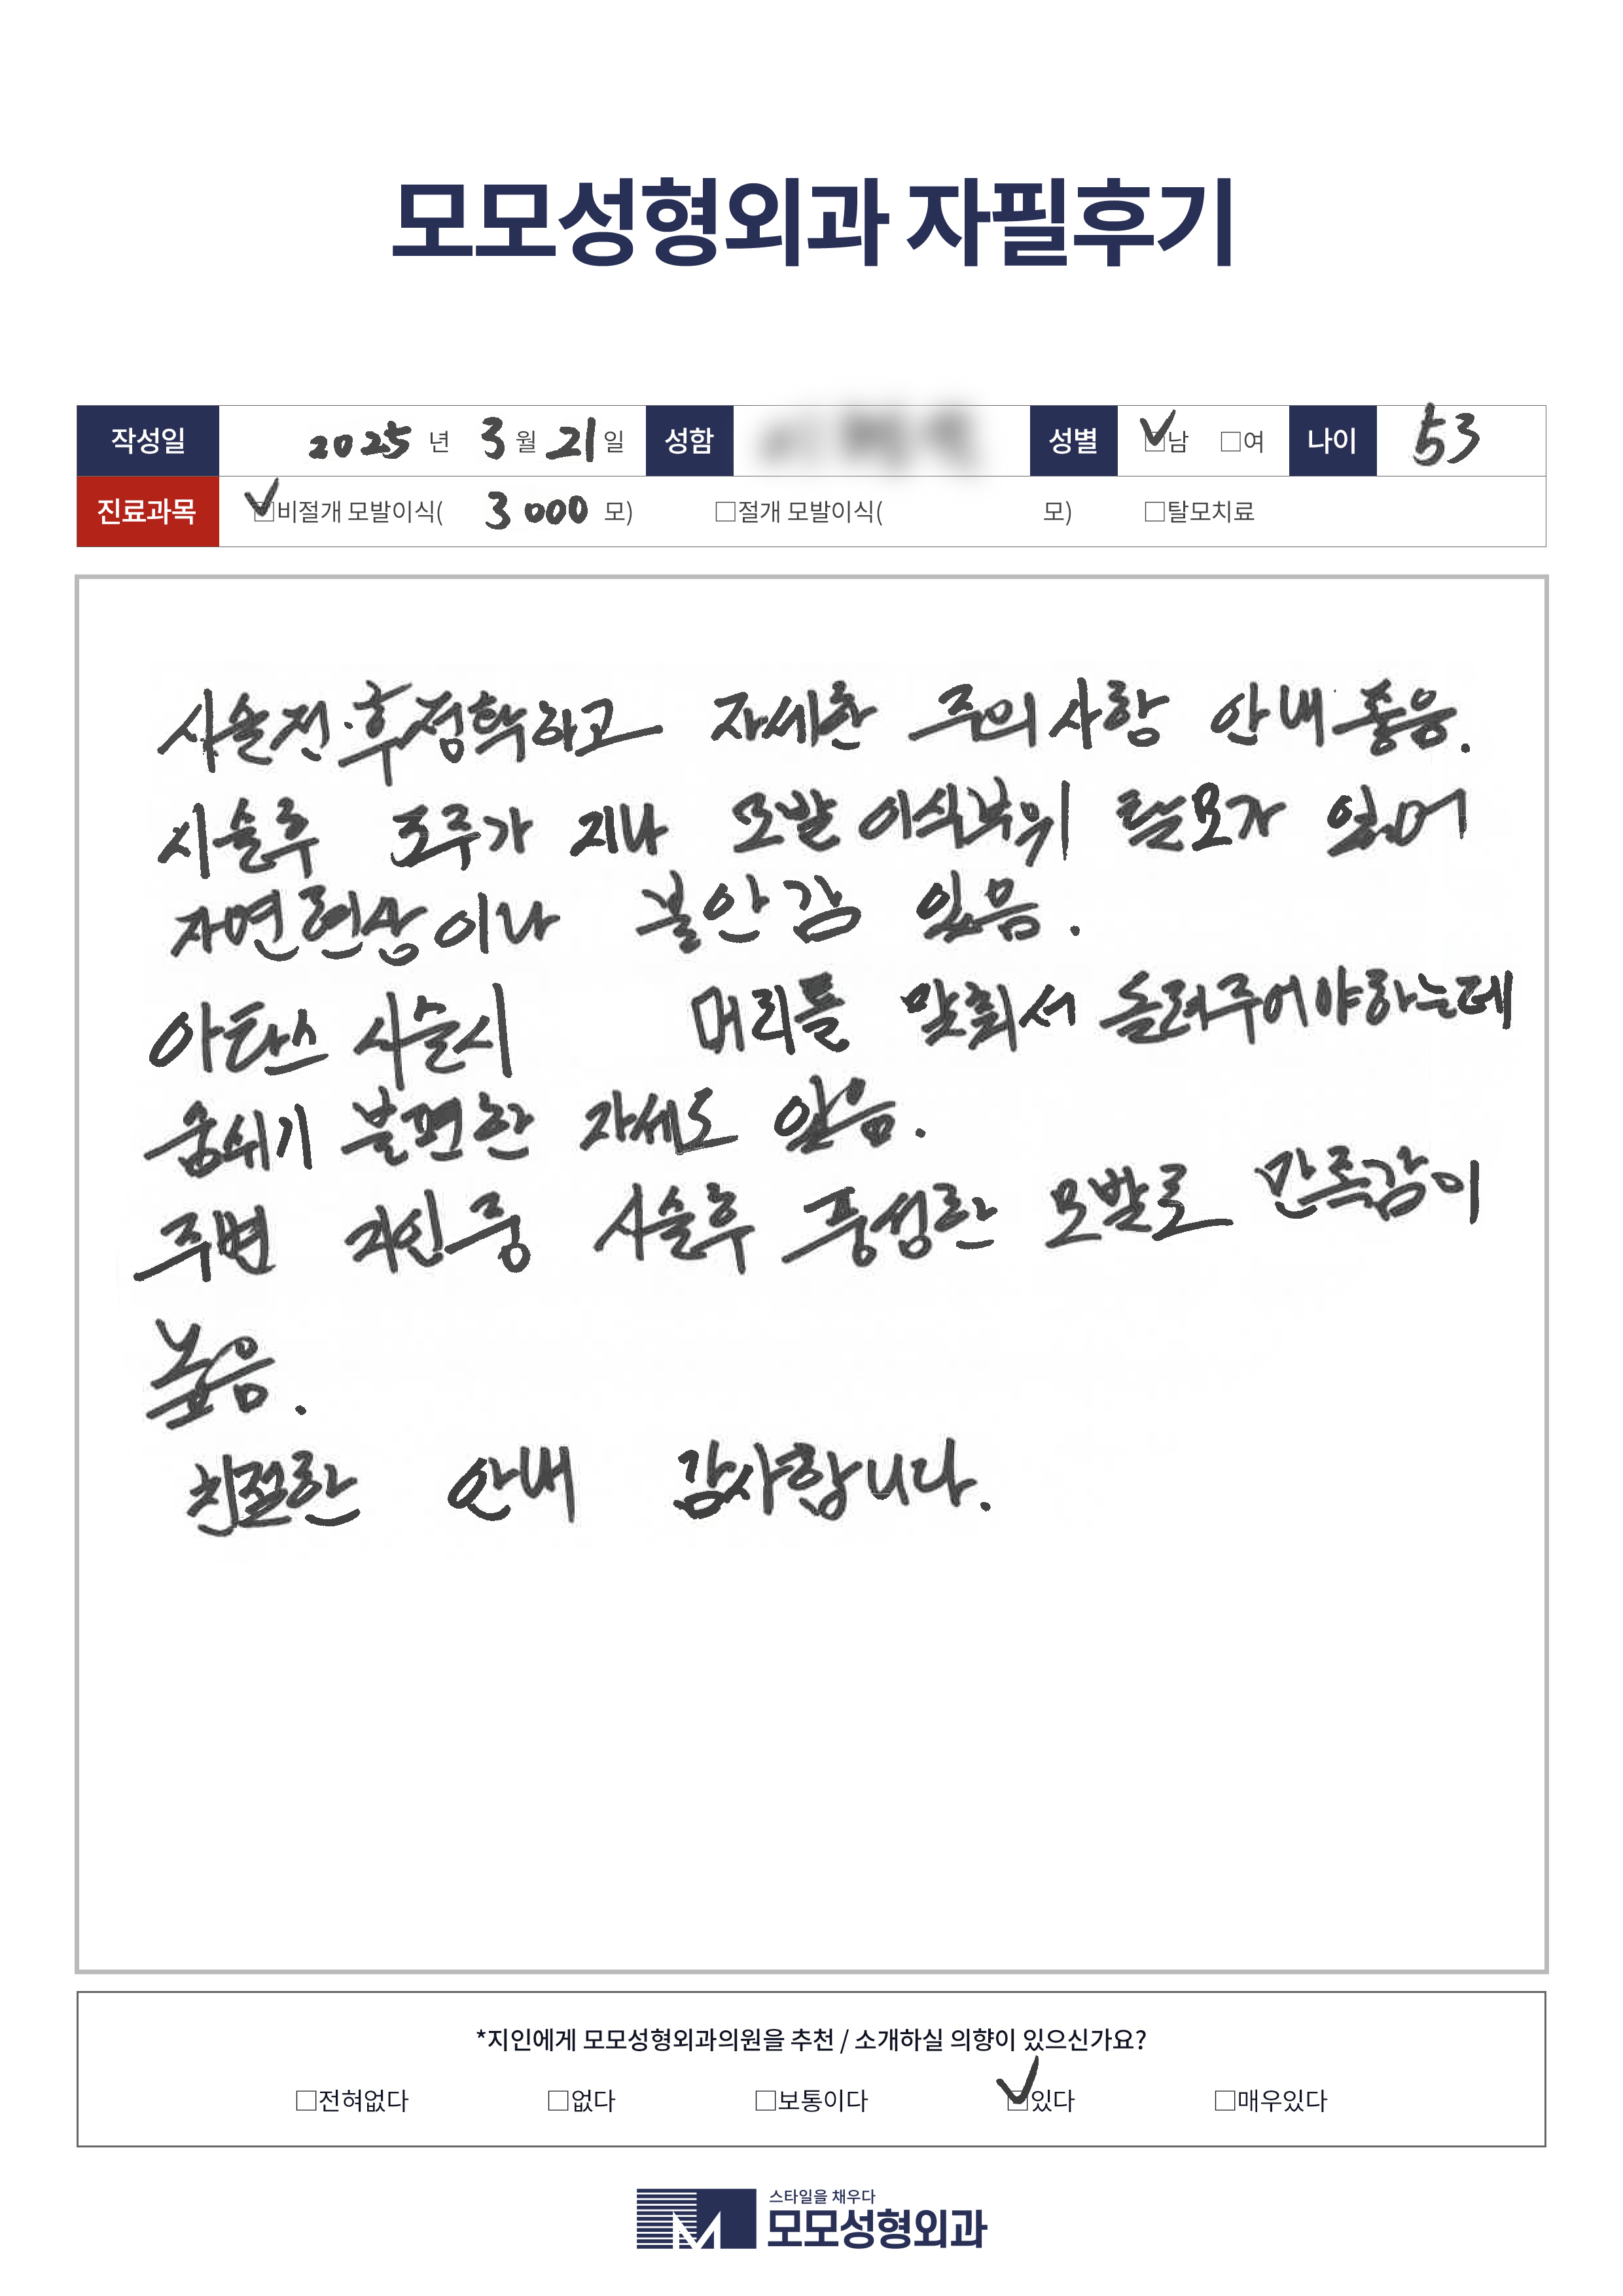 모모성형외과 자필후기
작성일 2025 년 3 월 21 일 성함 성별 ☑남 □여 나이 53
진료과목 ☑비절개 모발이식( 3000 모) □절개 모발이식( 모) □탈모치료
시술전·후 정확하고 자세한 주의사항 안내 좋음.
시술후 3주가 지나 모발 이식부위 탈모가 있어
자연현상이나 불안감 있음.
아타스 시술시 머리를 맞춰서 올려주어야하는데
숨쉬기 불편한 자세도 있음.
주변 지인중 시술후 풍성한 모발로 만족감이
높음.
친절한 안내 감사합니다.
*지인에게 모모성형외과의원을 추천 / 소개하실 의향이 있으신가요?
□전혀없다 □없다 □보통이다 ☑있다 □매우있다
스타일을 채우다
모모성형외과